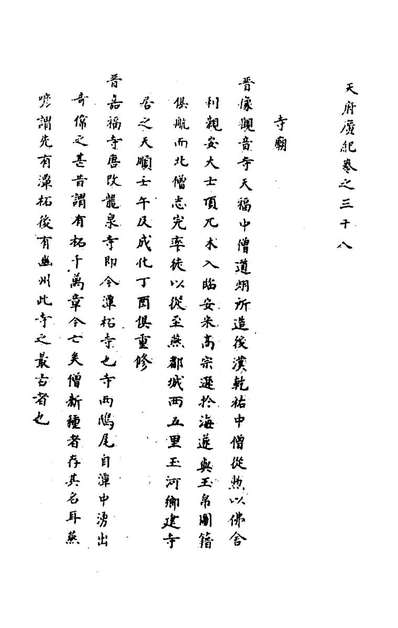 天府廣紀卷之三十八
寺廟
晉像觀音寺天福中僧道翊所造後漢乾祐中僧從勲以佛舍
利親安大士頂兀术入臨安宋高宗遯於海遂輿玉帛圖籍
俱航而北僧志完率徒以從至燕都城西五里玉河鄉建寺
居之天順壬午及成化丁酉俱重修
晉嘉福寺唐改龍泉寺即今潭柘寺也寺两鴟尾自潭中湧出
奇偉之甚昔謂有柘千萬章今亡矣僧新種者存其名耳燕
諺謂先有潭柘後有幽州此寺之最古者也